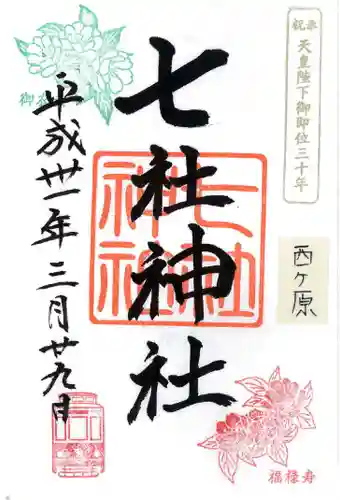 奉祝
天皇陛下御即位三十年
西ヶ原
七社神社
七社
神社
平成卅一年三月廿九日
福禄寿